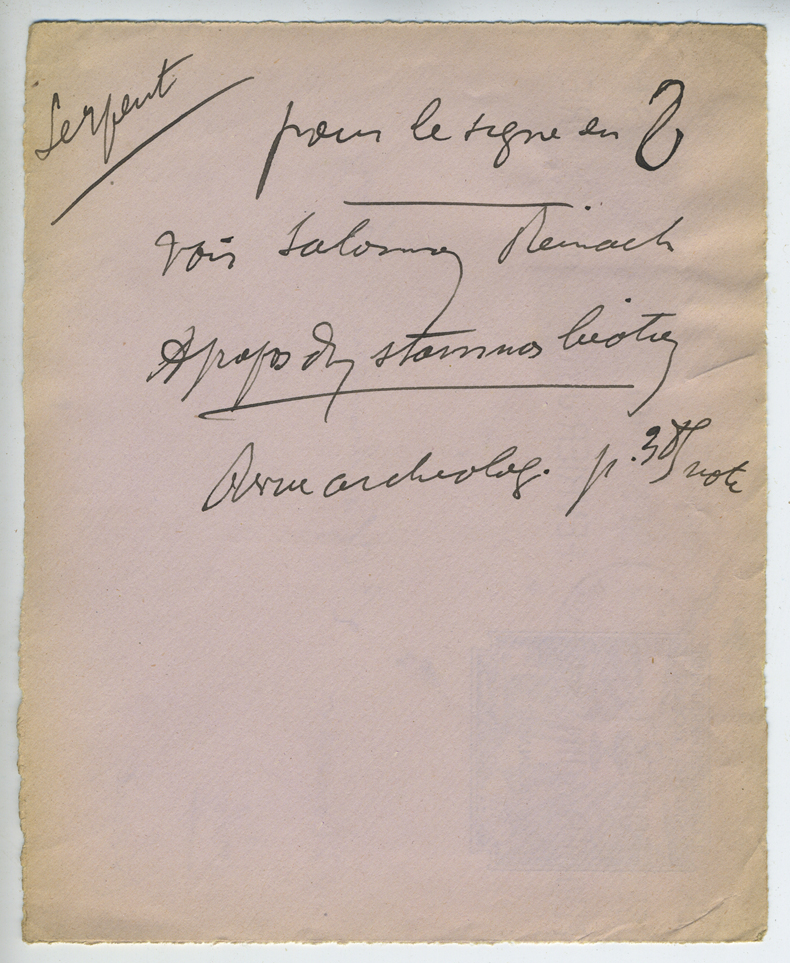 Serpent
pour le signe en
voir Salomon Reinach
A propos d'un stamnos béotien
Revue archéolog. p. note